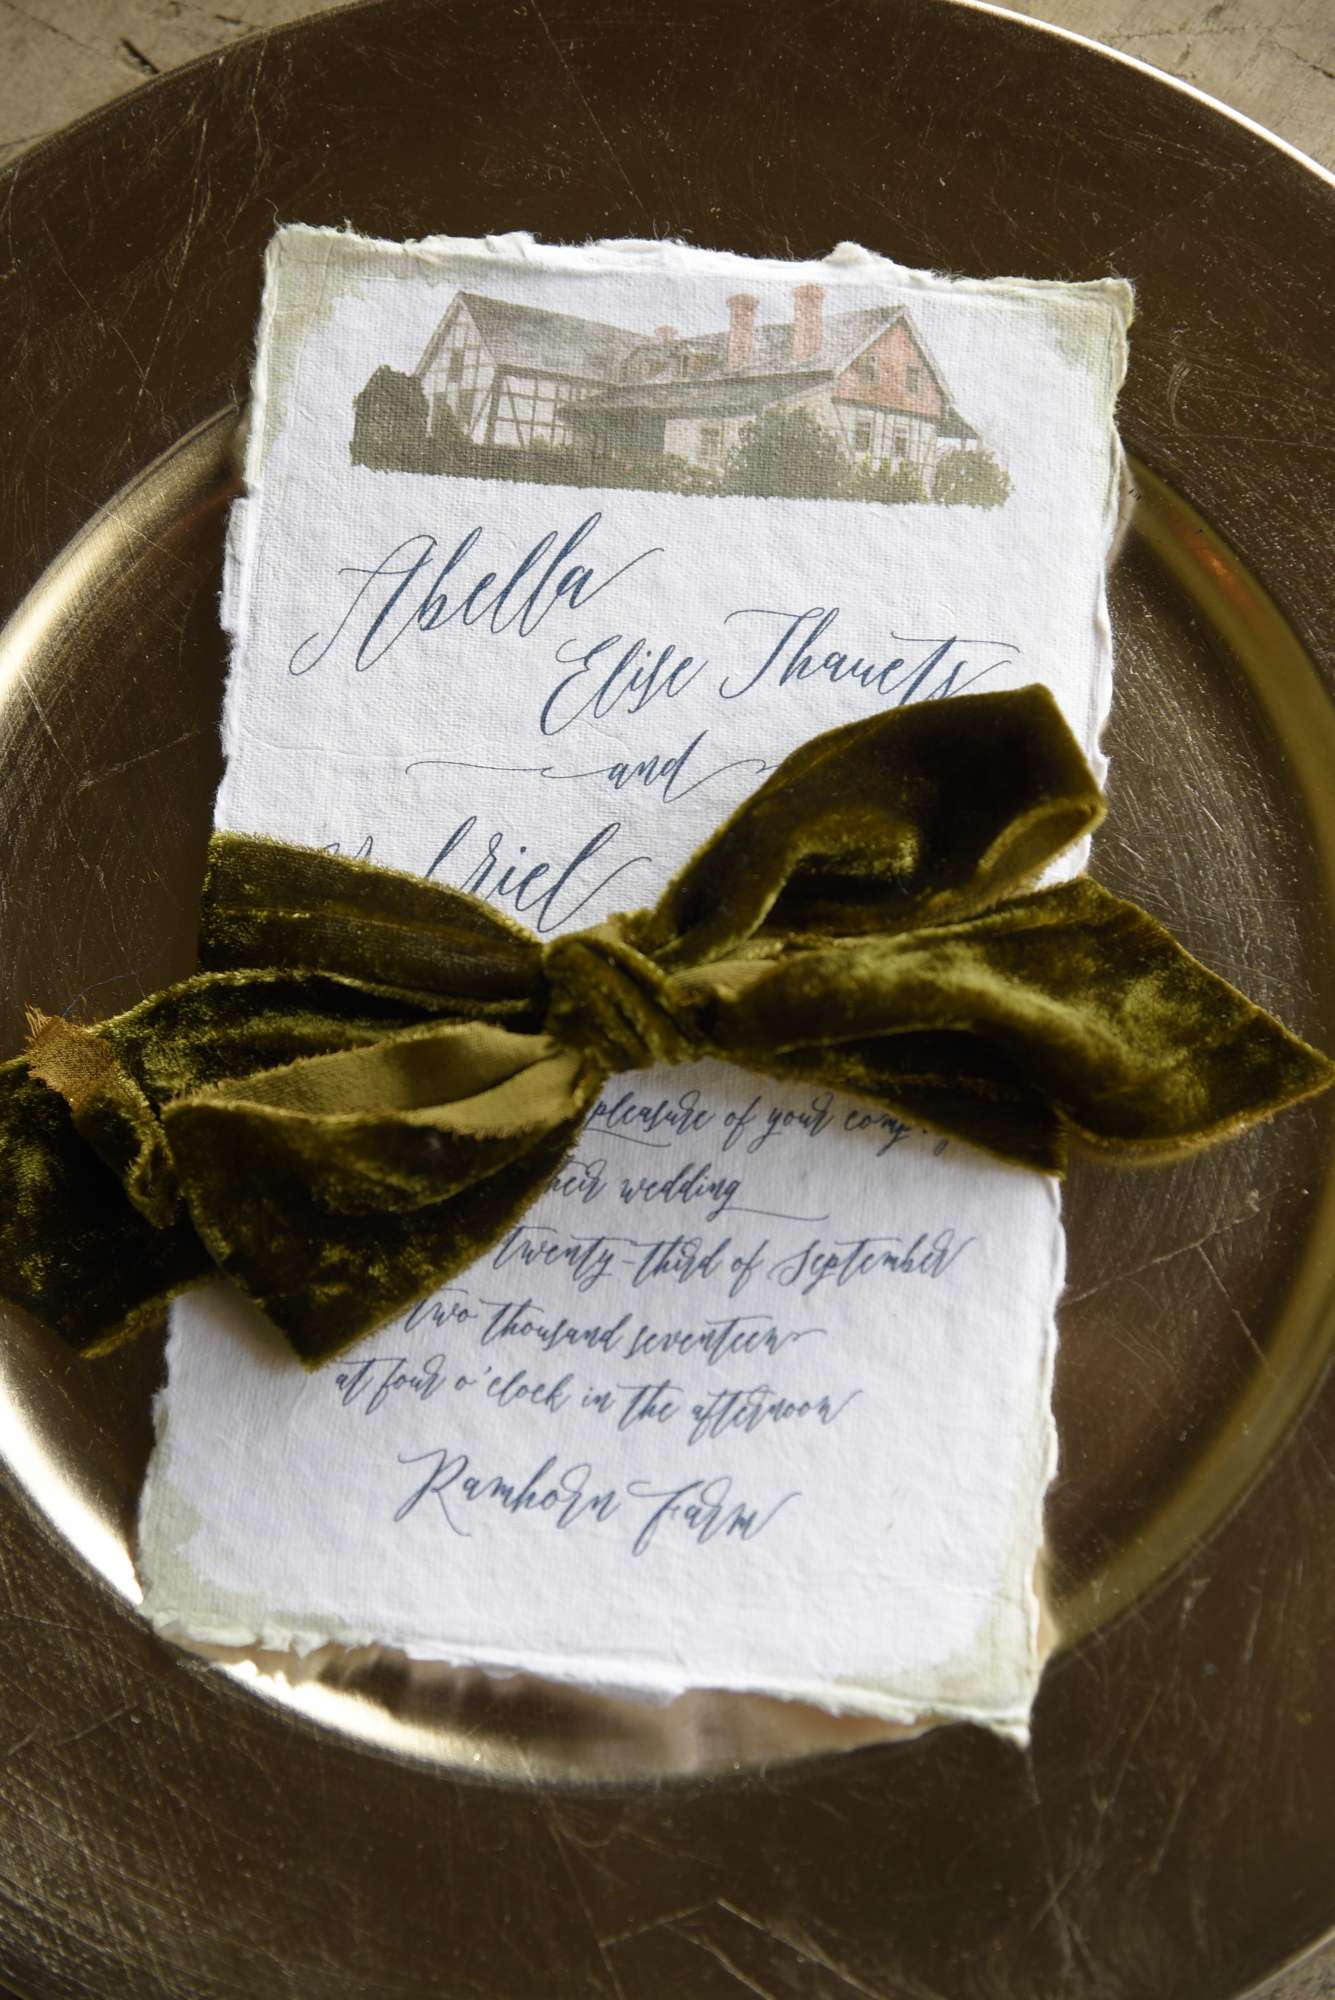 Abella
Elise Thauets
and
briel
pleasure of your
their wedding
twenty-third of September
two thousand seventeen
at four o'clock in the afternoon
Ramhorn Farm